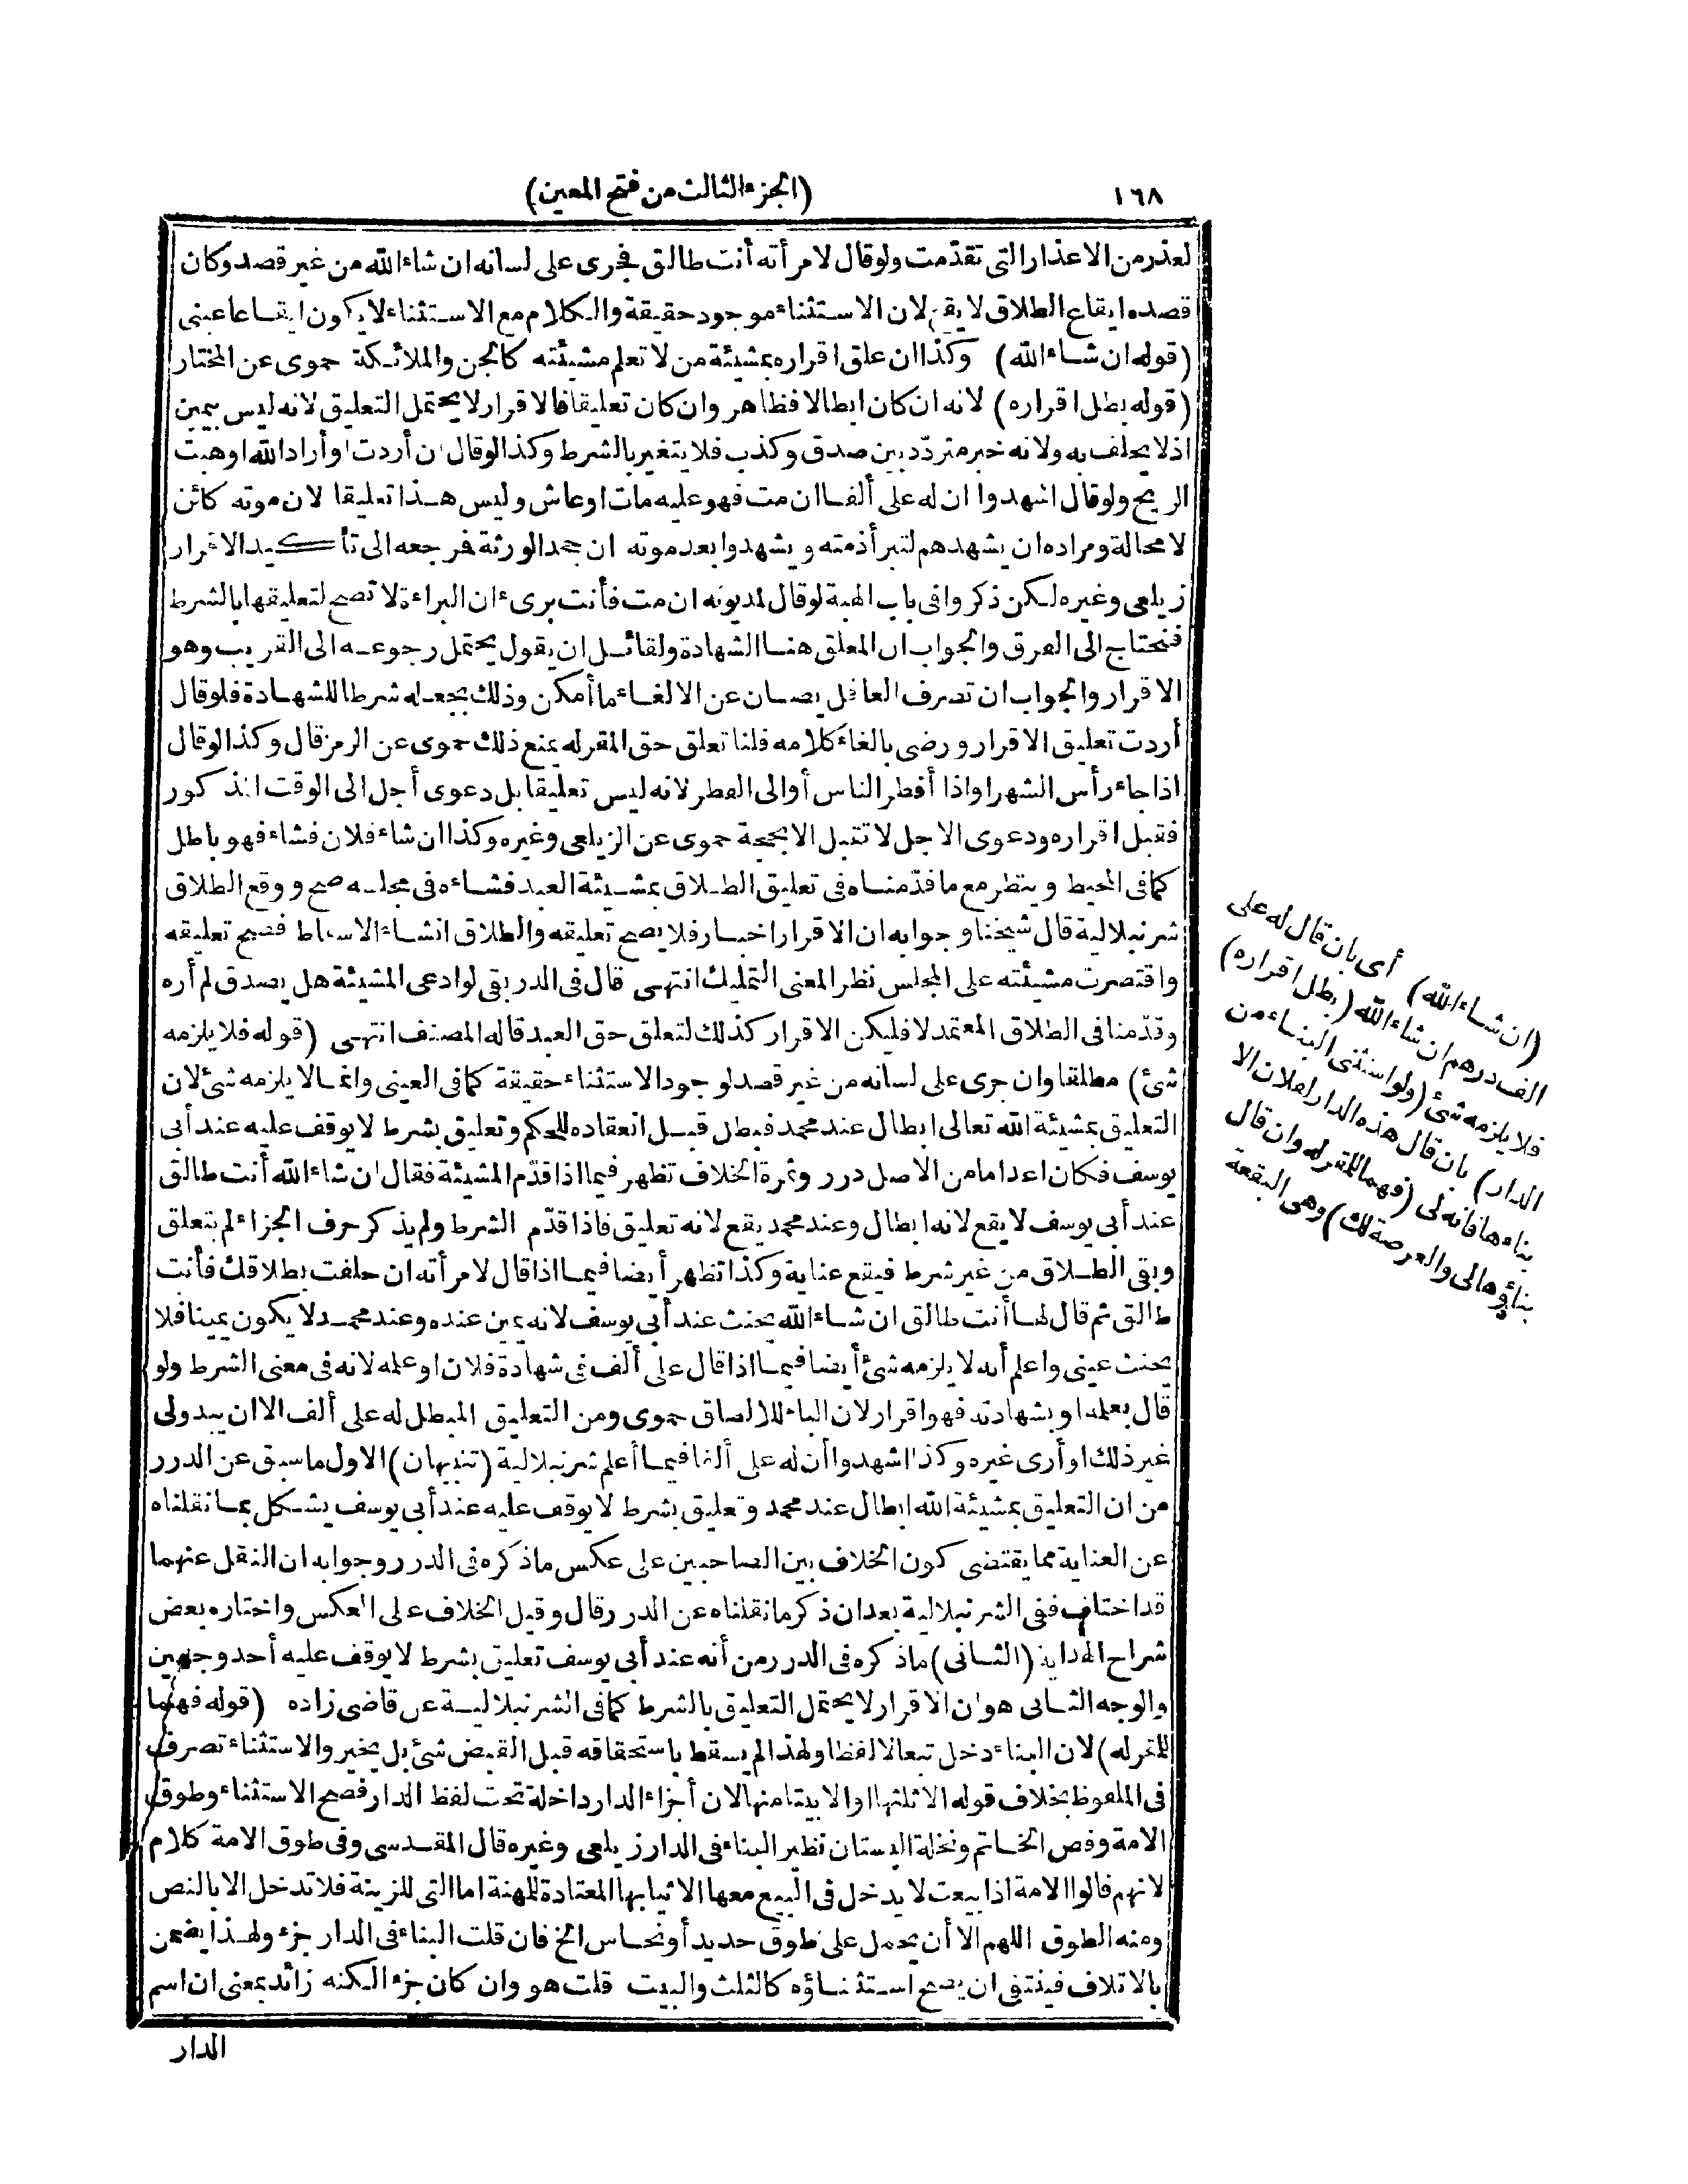 ١٦٨
(الجزء الثالث من فتح المعين)
لعذر من الاعذار التى تقدّمت ولو قال لامرأته أنت طالق فجرى على لسانه ان شاء الله من غير قصد وكان
قصده ايقاع الطلاق لا يقع لان الاستثناء موجود حقيقة والكلام مع الاستثناء لا يكون ايقاعا عينى
(قوله ان شاء الله) وكذا ان علق اقراره بمشيئة من لا تعلم مشيئته كالجن والملائكة حموى عن المختار
(قوله بطل اقراره) لانه ان كان ابطالا فظاهر وان كان تعليقا فالاقرار لا يحتمل التعليق لانه ليس بيمين
اذ لا يحلف به ولانه خبر متردّد بين صدق وكذب فلا يتغير بالشرط وكذا لو قال ان أردت أو أراد الله او هبت
الريح ولو قال اشهدوا ان له على ألفا ان مت فهو عليه مات او عاش وليس هذا تعليقا لان موته كائن
لا محالة ومراده ان يشهدهم لتبرأ ذمته ويشهدوا بعد موته ان جحد الورثة فرجعه الى تأكيد الاقرار
زيلعى وغيره لكن ذكروا فى باب الهبة لو قال لمديونه ان مت فأنت برىء ان البراءة لا تصح لتعليقها بالشرط
فنحتاج الى الفرق والجواب ان المعلق هنا الشهادة ولقائل ان يقول يحتمل رجوعه الى القريب وهو
الاقرار والجواب ان تصرف العاقل يصان عن الالغاء ما أمكن وذلك بجعله شرطا للشهادة فلو قال
أردت تعليق الاقرار ورضى بالغاء كلامه قلنا تعلق حق المقر له يمنع ذلك حموى عن الرمز قال وكذا لو قال
اذا جاء رأس الشهر او اذا أفطر الناس أو الى الفطر لانه ليس تعليقا بل دعوى أجل الى الوقت المذكور
فقبل اقراره ودعوى الاجل لا تقبل الا بحجة حموى عن الزيلعى وغيره وكذا ان شاء فلان فشاء فهو باطل
كما فى المحيط وينظر مع ما قدّمناه فى تعليق الطلاق بمشيئة العبد فشاءه فى مجلسه صح ووقع الطلاق
شرنبلالية قال شيخنا وجوابه ان الاقرار اخبار فلا يصح تعليقه والطلاق انشاء الاسقاط فصح تعليقه
واقتصرت مشيئته على المجلس نظر المعنى التمليك انتهى قال فى الدر بقى لو ادعى المشيئة هل يصدق لم أره
وقدّمنا فى الطلاق المعتمد لا فليكن الاقرار كذلك لتعلق حق العبد قاله المصنف انتهى (قوله فلا يلزمه
شئ) مطلقا وان جرى على لسانه من غير قصد لوجود الاستثناء حقيقة كما فى العينى وانما لا يلزمه شئ لان
التعليق بمشيئة الله تعالى ابطال عند محمد فبطل قبل انعقاده للحكم وتعليق بشرط لا يوقف عليه عند أبى
يوسف فكان اعداما من الاصل درر وثمرة الخلاف تظهر فيما اذا قدّم المشيئة فقال ان شاء الله أنت طالق
عند أبى يوسف لا يقع لانه ابطال وعند محمد يقع لانه تعليق فاذا قدّم الشرط ولم يذكر حرف الجزاء لم يتعلق
وبقى الطلاق من غير شرط فيقع عناية وكذا تظهر أيضا فيما اذا قال لامرأته ان حلفت بطلاقك فأنت
طالق ثم قال لها أنت طالق ان شاء الله يحنث عند أبى يوسف لانه يمين عنده وعند محمد لا يكون يمينا فلا
يحنث عينى واعلم أنه لا يلزمه شئ أيضا فيما اذا قال على ألف فى شهادة فلان او علمه لانه فى معنى الشرط ولو
قال بعلمه او بشهادته فهو اقرار لان الباء للالصاق حموى ومن التعليق المبطل له على ألف الا ان يبدو لى
غير ذلك او أرى غيره وكذا اشهدوا أن له على ألفا فيما أعلم شرنبلالية (تنبيهان) الاول ما سبق عن الدرر
من ان التعليق بمشيئة الله ابطال عند محمد وتعليق بشرط لا يوقف عليه عند أبى يوسف يشكل بما نقلناه
عن العناية مما يقتضى كون الخلاف بين الصاحبين على عكس ما ذكره فى الدرر وجوابه ان النقل عنهما
قد اختلف ففى الشرنبلالية بعد ان ذكر ما نقلناه عن الدرر قال وقيل الخلاف على العكس واختاره بعض
شراح الهداية (الثانى) ما ذكره فى الدرر من أنه عند أبى يوسف تعليق بشرط لا يوقف عليه أحد وجهين
والوجه الثانى هو ان الاقرار لا يحتمل التعليق بالشرط كما فى الشرنبلالية عن قاضى زاده (قوله فهما
للمقر له) لان البناء دخل تبعا لا لفظا ولهذا لم يسقط باستحقاقه قبل القبض شئ بل يخير والاستثناء تصرف
فى الملفوظ بخلاف قوله الا ثلثها او الا بيتا منها لان أجزاء الدار داخلة تحت لفظ الدار فصح الاستثناء وطوق
الامة وفص الخاتم ونخلة البستان نظير البناء فى الدار زيلعى وغيره قال المقدسى وفى طوق الامة كلام
لانهم قالوا الامة اذا بيعت لا يدخل فى البيع معها الا ثيابها المعتادة للمهنة اما التى للزينة فلا تدخل الا بالنص
ومنه الطوق اللهم الا أن يحمل على طوق حديد أو نحاس الخ فان قلت البناء فى الدار جزء ولهذا يضمن
بالاتلاف فينتفى ان يصح استثناؤه كالثلث والبيت قلت هو وان كان جزء الكنه زائد بمعنى ان اسم
الدار
(ان شاء الله) أى بان قال له على
الف درهم ان شاء الله (بطل اقراره)
فلا يلزمه شئ (ولو استثنى البناء من
الدار) بان قال هذه الدار لفلان الا
بناءها فانه لى (فهما للمقر له وان قال
بناؤها لى والعرصة لك) وهى البقعة